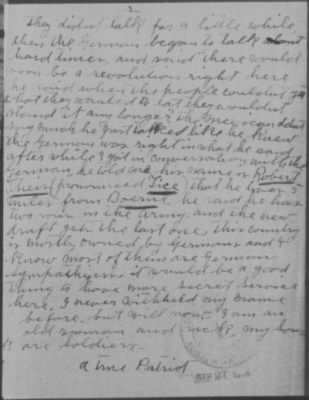 2
They didnt talk for a little while
then the German began to talk about
hard times, and said there would
soon be a revolution right here
he said when the people couldnt get
what they wanted to eat they wouldnt
stand it any longer, the Mexican didnt
say much he just talked like he knew
the German was right in what he said
after while I got in conversation with the
German, he told me his name is Robert
Theis (pronounced Tice) that he lives 5
miles from Boerne he said he has
two sons in the army and the new
draft gets the last one, this country
is mostly owned by Germans and I
know most of them are German
sympathyzers it would be a good
thing to have more secret service
here, I never withheld my name
before, but will now, I am an
old woman and my sons
are soldiers.
A true Patriot